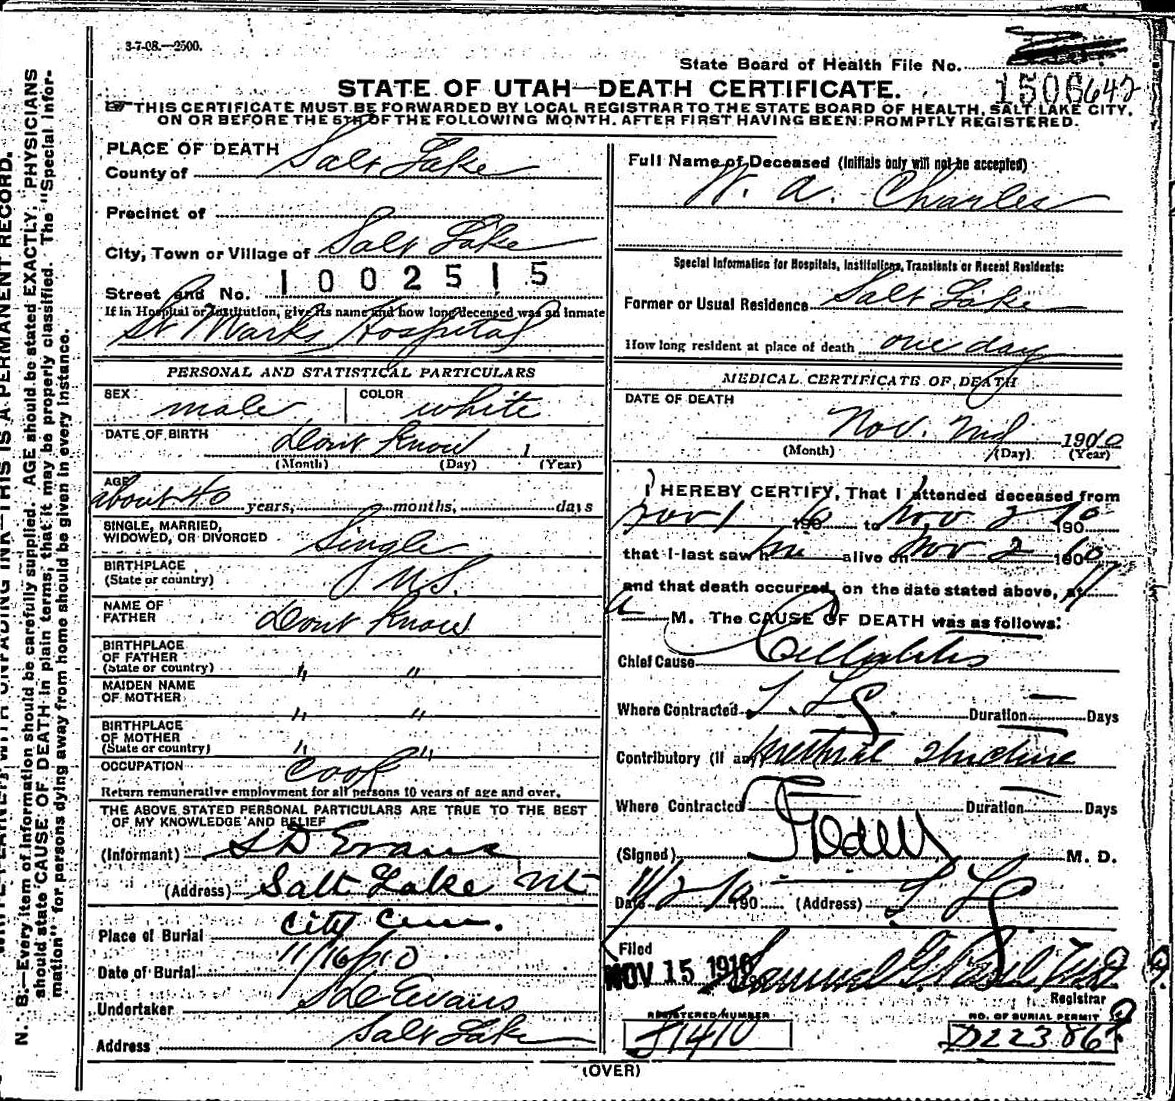 3-7-08.—2500.
State Board of Health File No.
1506 642
STATE OF UTAH—DEATH CERTIFICATE.
☞THIS CERTIFICATE MUST BE FORWARDED BY LOCAL REGISTRAR TO THE STATE BOARD OF HEALTH, SALT LAKE CITY,
ON OR BEFORE THE 5TH OF THE FOLLOWING MONTH. AFTER FIRST HAVING BEEN PROMPTLY REGISTERED.
N. B.—Every item of information should be carefully supplied. AGE should be stated EXACTLY. PHYSICIANS
should state CAUSE OF DEATH in plain terms, that it may be properly classified. The "Special Infor-
mation" for persons dying away from home should be given in every instance.
THIS IS A PERMANENT RECORD.
PLACE OF DEATH
County of Salt Lake
Precinct of
City, Town or Village of Salt Lake
Street and No. 1002515
If in Hospital or Institution, give its name and how long deceased was an inmate
St Marks Hospital
PERSONAL AND STATISTICAL PARTICULARS
SEX male COLOR white
DATE OF BIRTH Dont Know 1
(Month) (Day) (Year)
AGE about 40 years, months, days
SINGLE, MARRIED,
WIDOWED, OR DIVORCED Single
BIRTHPLACE
(State or country) U.S.
NAME OF
FATHER Dont Know
BIRTHPLACE
OF FATHER
(State or country) " "
MAIDEN NAME
OF MOTHER " "
BIRTHPLACE
OF MOTHER
(State or country) " "
OCCUPATION Cook
Return remunerative employment for all persons 10 years of age and over.
THE ABOVE STATED PERSONAL PARTICULARS ARE TRUE TO THE BEST
OF MY KNOWLEDGE AND BELIEF
(Informant) S D Evans
(Address) Salt Lake Ut
Place of Burial City Cem.
Date of Burial 11/16/10
Undertaker S D Evans
Address Salt Lake
Full Name of Deceased (Initials only will not be accepted)
W. A. Charles
Special Information for Hospitals, Institutions, Transients or Recent Residents:
Former or Usual Residence Salt Lake
How long resident at place of death one day
MEDICAL CERTIFICATE OF DEATH
DATE OF DEATH
Nov. 2nd 1910
(Month) (Day) (Year)
I HEREBY CERTIFY, That I attended deceased from
Nov 1 190 to Nov 2 10 190
that I last saw him alive on Nov 2 1910
and that death occurred, on the date stated above, at 11
a M. The CAUSE OF DEATH was as follows:
Chief Cause Cellulitis
Where Contracted S. L. C. Duration — Days
Contributory (If any) Urethral Stricture
Where Contracted Duration — Days
(Signed) M. D.
Date 11/2/10 190 (Address) S L C
Filed
NOV 15 1910 Samuel G. Paul M.D.
Registrar
REGISTERED NUMBER
NO. OF BURIAL PERMIT
D22386
(OVER)